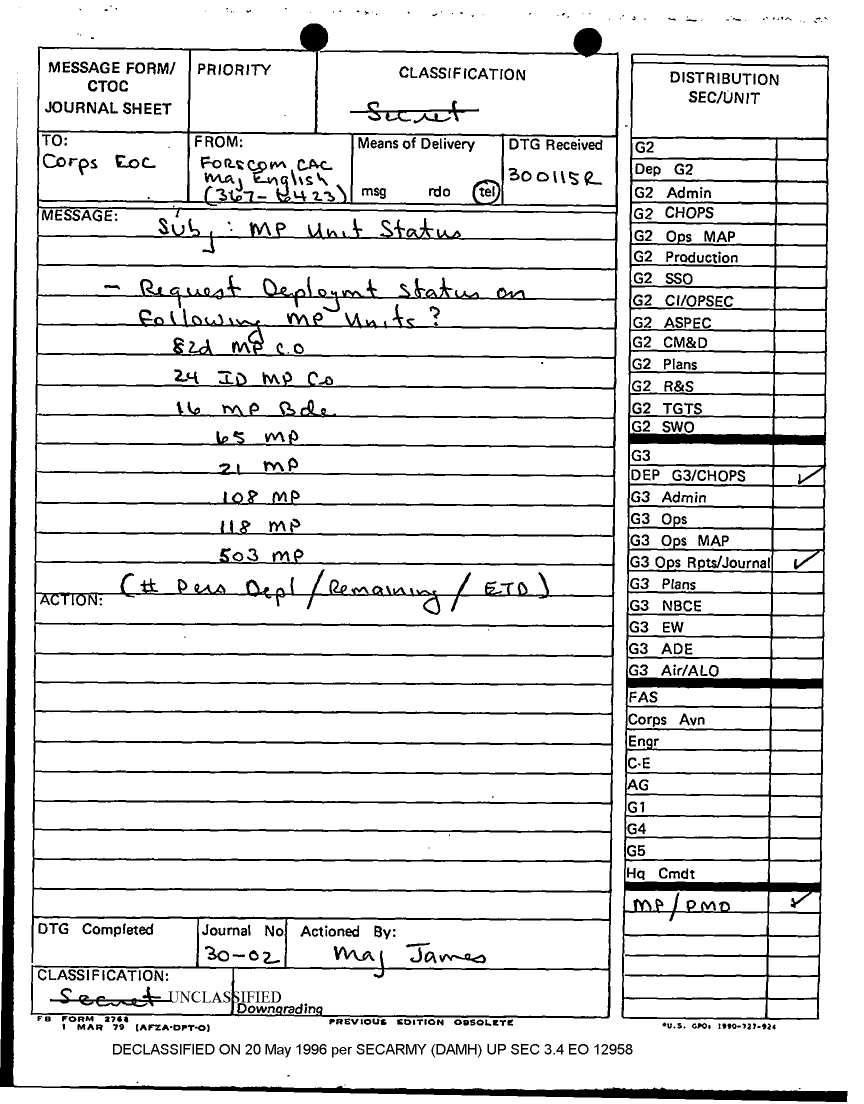 MESSAGE FORM/
CTOC
JOURNAL SHEET
PRIORITY
CLASSIFICATION
Secret
TO:
Corps EOC
FROM:
FORSCOM CAC
Maj English
(367-6423)
Means of Delivery
msg rdo tel
DTG Received
300115R
MESSAGE:
Subj: MP Unit Status
- Request Deploymt Status on
Following MP Units?
82d MP Co
24 ID MP Co
16 MP Bde
65 MP
21 MP
108 MP
118 MP
503 MP
(# Pers Depl/Remaining/ETD)
ACTION:
DTG Completed
Journal No
30-02
Actioned By:
Maj James
CLASSIFICATION:
Secret UNCLASSIFIED
Downgrading
FB FORM 2768
1 MAR 79 (AFZA-DPT-O)
PREVIOUS EDITION OBSOLETE
DISTRIBUTION
SEC/UNIT
G2
Dep G2
G2 Admin
G2 CHOPS
G2 Ops MAP
G2 Production
G2 SSO
G2 CI/OPSEC
G2 ASPEC
G2 CM&D
G2 Plans
G2 R&S
G2 TGTS
G2 SWO
G3
DEP G3/CHOPS ✓
G3 Admin
G3 Ops
G3 Ops MAP
G3 Ops Rpts/Journal ✓
G3 Plans
G3 NBCE
G3 EW
G3 ADE
G3 Air/ALO
FAS
Corps Avn
Engr
C-E
AG
G1
G4
G5
Hq Cmdt
MP/PMO ✓
*U.S. GPO: 1990-727-924
DECLASSIFIED ON 20 May 1996 per SECARMY (DAMH) UP SEC 3.4 EO 12958